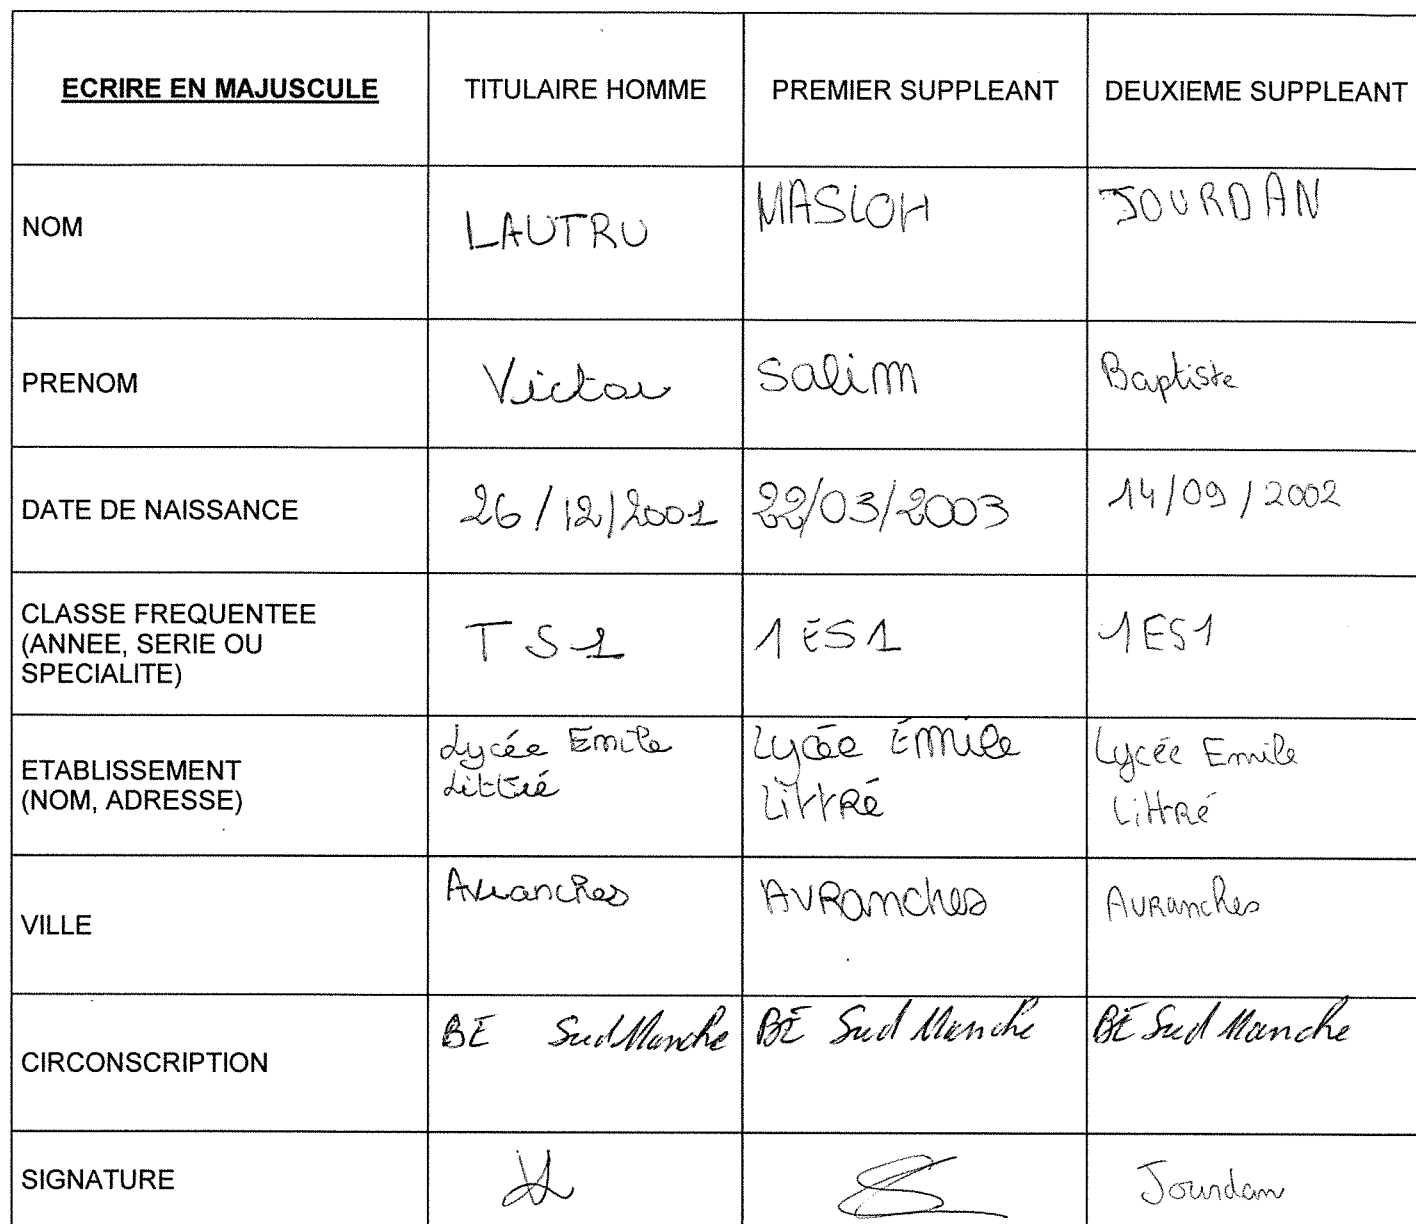 ECRIRE EN MAJUSCULE TITULAIRE HOMME PREMIER SUPPLEANT DEUXIEME SUPPLEANT
NOM LAUTRU MASLOH JOURDAN
PRENOM Victor Salim Baptiste
DATE DE NAISSANCE 26/12/2001 22/03/2003 14/09/2002
CLASSE FREQUENTEE
(ANNEE, SERIE OU
SPECIALITE)
TS1 1ES1 1ES1
ETABLISSEMENT
(NOM, ADRESSE)
Lycée Emile
Littré
Lycée Émile
Littré
Lycée Emile
Littré
VILLE Avranches AVRanches AVRanches
CIRCONSCRIPTION BE Sud Manche BE Sud Manche BE Sud Manche
SIGNATURE Jourdan